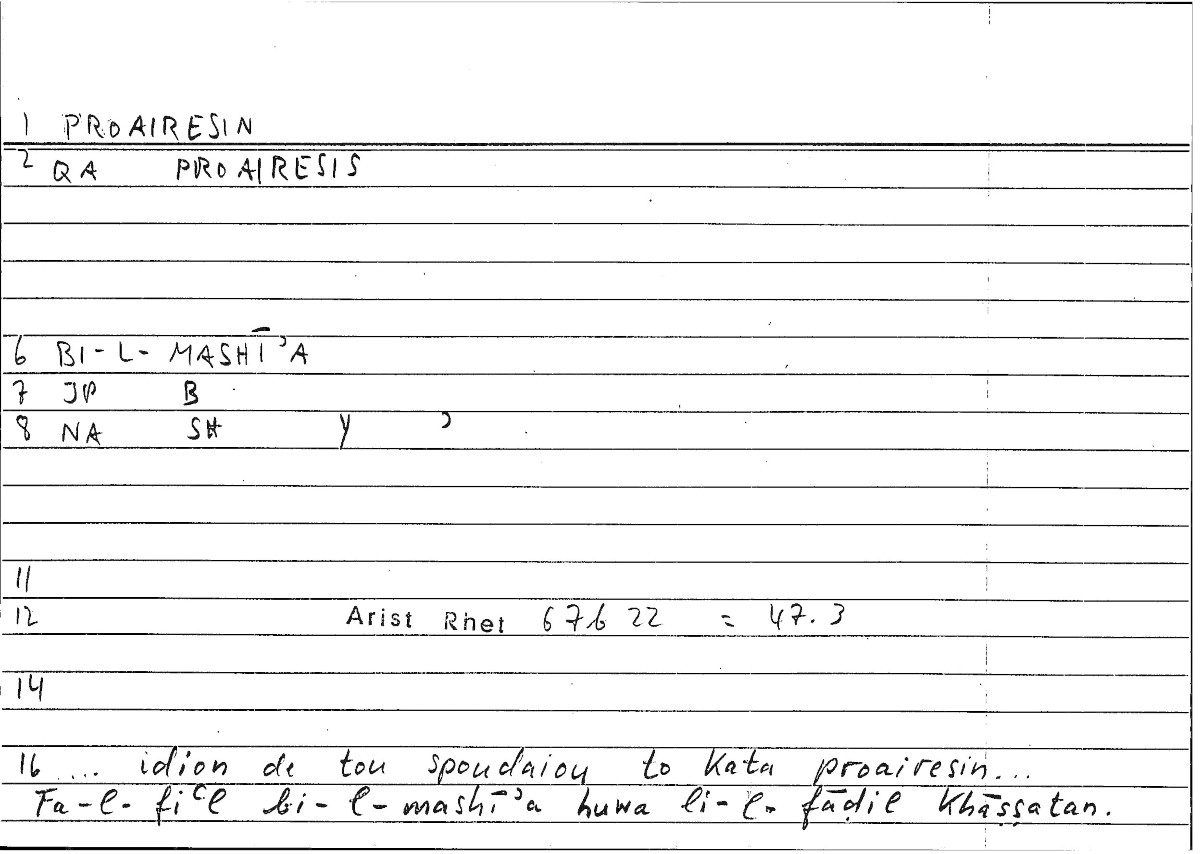 1 PROAIRESIN
2 QA PROAIRESIS
6 BI-L-MASHĪʾA
7 JP B
8 NA SH Y ʾ
11
12 Arist Rhet 67b 22 = 47.3
14
16 .... idion de tou spoudaiou to kata proairesin...
Fa-l-fiʿl bi-l-mashīʾa huwa li-l-fāḍil khāṣṣatan.